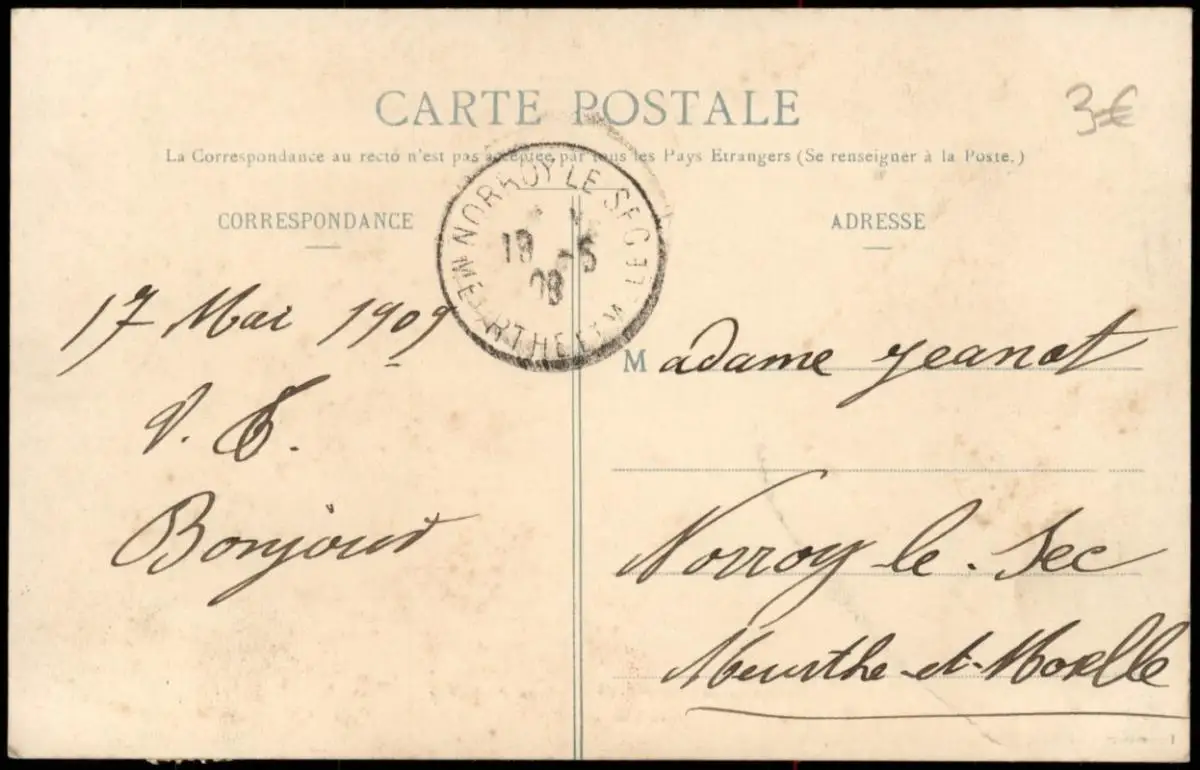 CARTE POSTALE
3€
La Correspondance au recto n'est pas acceptée par tous les Pays Etrangers (Se renseigner à la Poste.)
CORRESPONDANCE
ADRESSE
NORROY LE SEC
19 -5
09
MEURTHE ET M
17 Mai 1909
Bonjour
Madame Jeanot
Norroy-le-Sec
Meurthe-et-Moselle